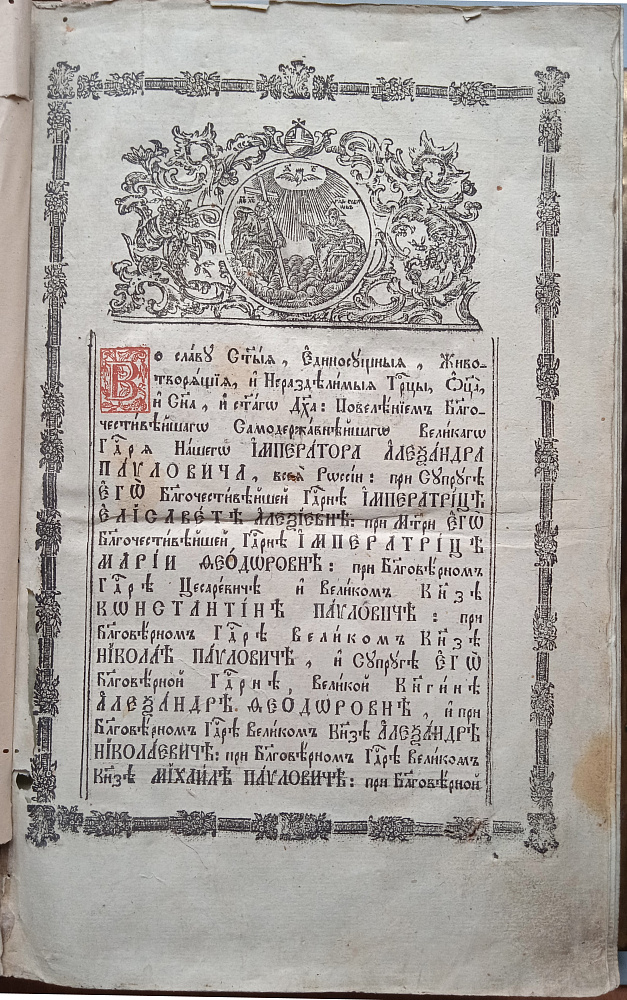 Во сла́ву Ст҃ы́ѧ, Є҆диносꙋ́щныѧ, Живо-
творѧ́щїѧ, и҆ Нераздѣ́лимыѧ Трⷪ҇цы, Ѻ҆ц҃а̀,
и҆ Сн҃а, и҆ ст҃а́гѡ Дх҃а: Повелѣ́нїемъ Бл҃го-
чести́вѣйшагѡ Самодержа́внѣйшагѡ Вели́кагѡ
Гдⷭ҇рѧ На́шегѡ І҆МПЕРА́ТОРА А҆ЛЕѮА́НДРА
ПА́ѴЛОВИЧА, всеѧ̀ Рѡссі́и: при Сꙋпрꙋ́гѣ
Є҆ГѠ̀ Бл҃гочести́вѣйшей Гдⷭ҇рнѣ І҆МПЕРАТРІ́ЦѢ
Є҆ЛІСАВЕ́ТѢ А҆ЛЕѮІ́ЕВНѢ: при Мт҃ри Є҆ГѠ̀
Бл҃гочести́вѣйшей Гдⷭ҇рнѣ І҆МПЕРАТРІ́ЦѢ
МАРІ́И Ѳ҆ЕО́ДѠРОВНѢ: при Бл҃говѣ́рномъ
Гдⷭ҇рѣ Цесаре́вичѣ и҆ Вели́комъ Кн҃зѣ
КѠНСТАНТІ́НѢ ПА́ѴЛОВИЧѢ: при
Бл҃говѣ́рномъ Гдⷭ҇рѣ Вели́комъ Кн҃зѣ
НІКОЛА́Ѣ ПА́ѴЛОВИЧѢ, и҆ Сꙋпрꙋ́гѣ Є҆ГѠ̀
Бл҃говѣ́рной Гдⷭ҇рнѣ, Вели́кой Кн҃ги́нѣ
А҆ЛЕѮА́НДРѢ Ѳ҆ЕО́ДѠРОВНѢ, и҆ при
Бл҃говѣ́рномъ Гдⷭ҇рѣ Вели́комъ Кн҃зѣ А҆ЛЕѮА́НДРѢ
НІКОЛА́ЕВИЧѢ: при Бл҃говѣ́рномъ Гдⷭ҇рѣ Вели́комъ
Кн҃зѣ МІХАИ́ЛѢ ПА́ѴЛОВИЧѢ: при Бл҃говѣ́рной